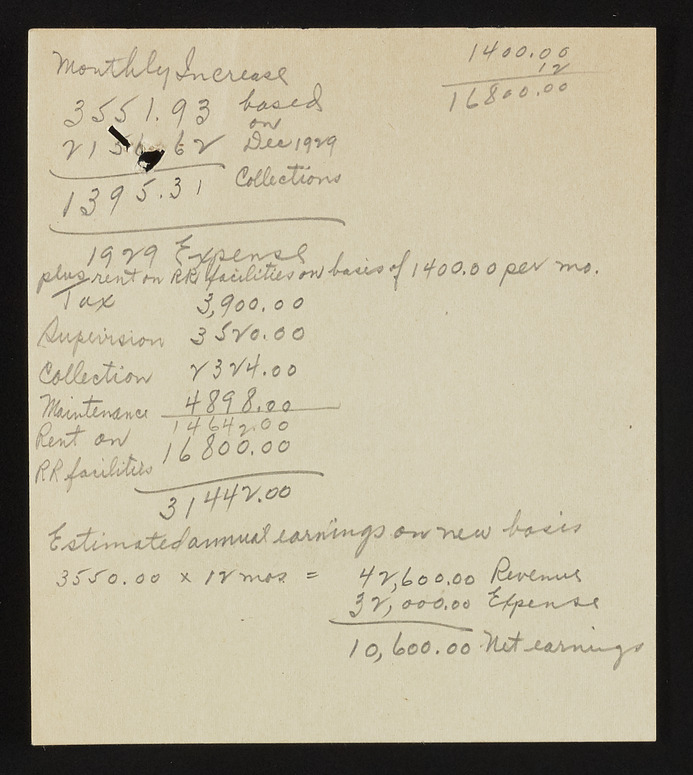 Monthly Increase
1400.00
12
16800.00
3551.93 based
on
2156.62 Dec 1929
1395.31 Collections
1929 Expense
plus rent on RR facilities on basis of 1400.00 per mo.
Tax 3,900.00
Supervision 3520.00
Collection 2324.00
Maintenance 4898.00
14642.00
Rent on 16800.00
RR facilities
31442.00
Estimated annual earnings on new basis
3550.00 x 12 mos = 42,600.00 Revenue
32,000.00 Expense
10,600.00 Net earnings